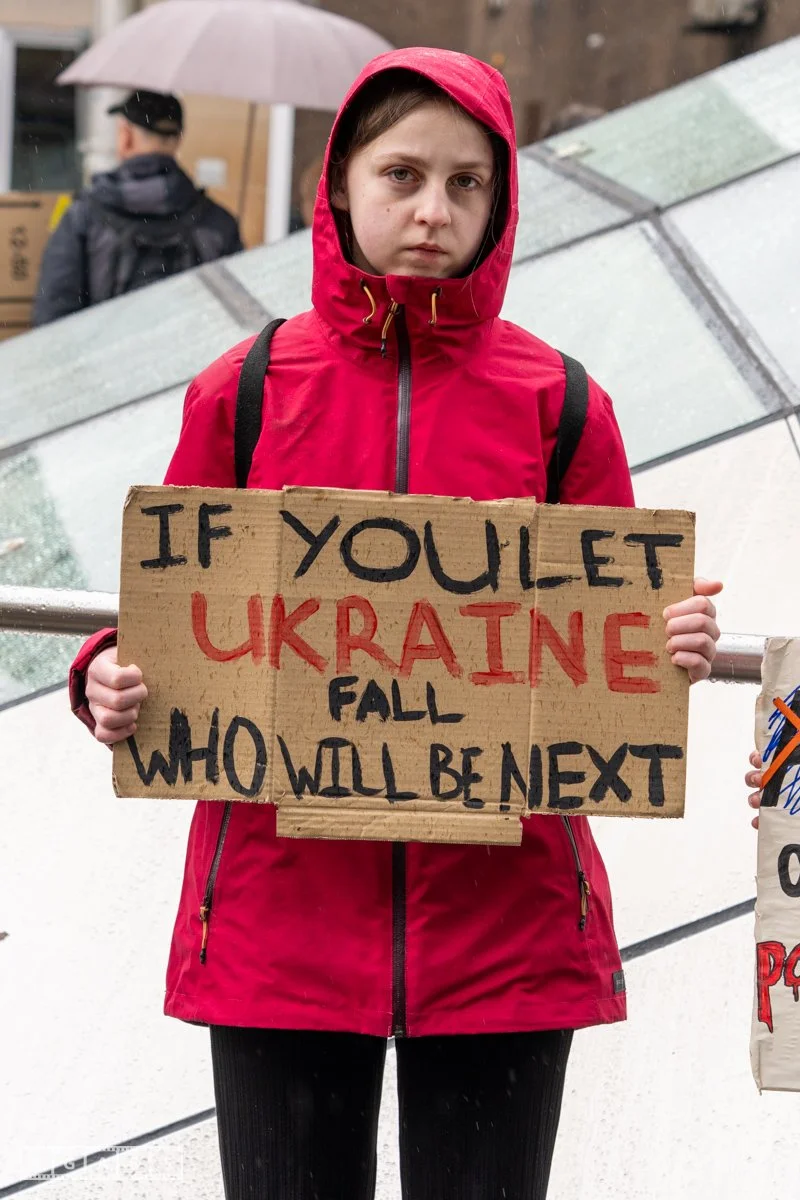 IF YOU LET
UKRAINE
FALL
WHO WILL BE NEXT